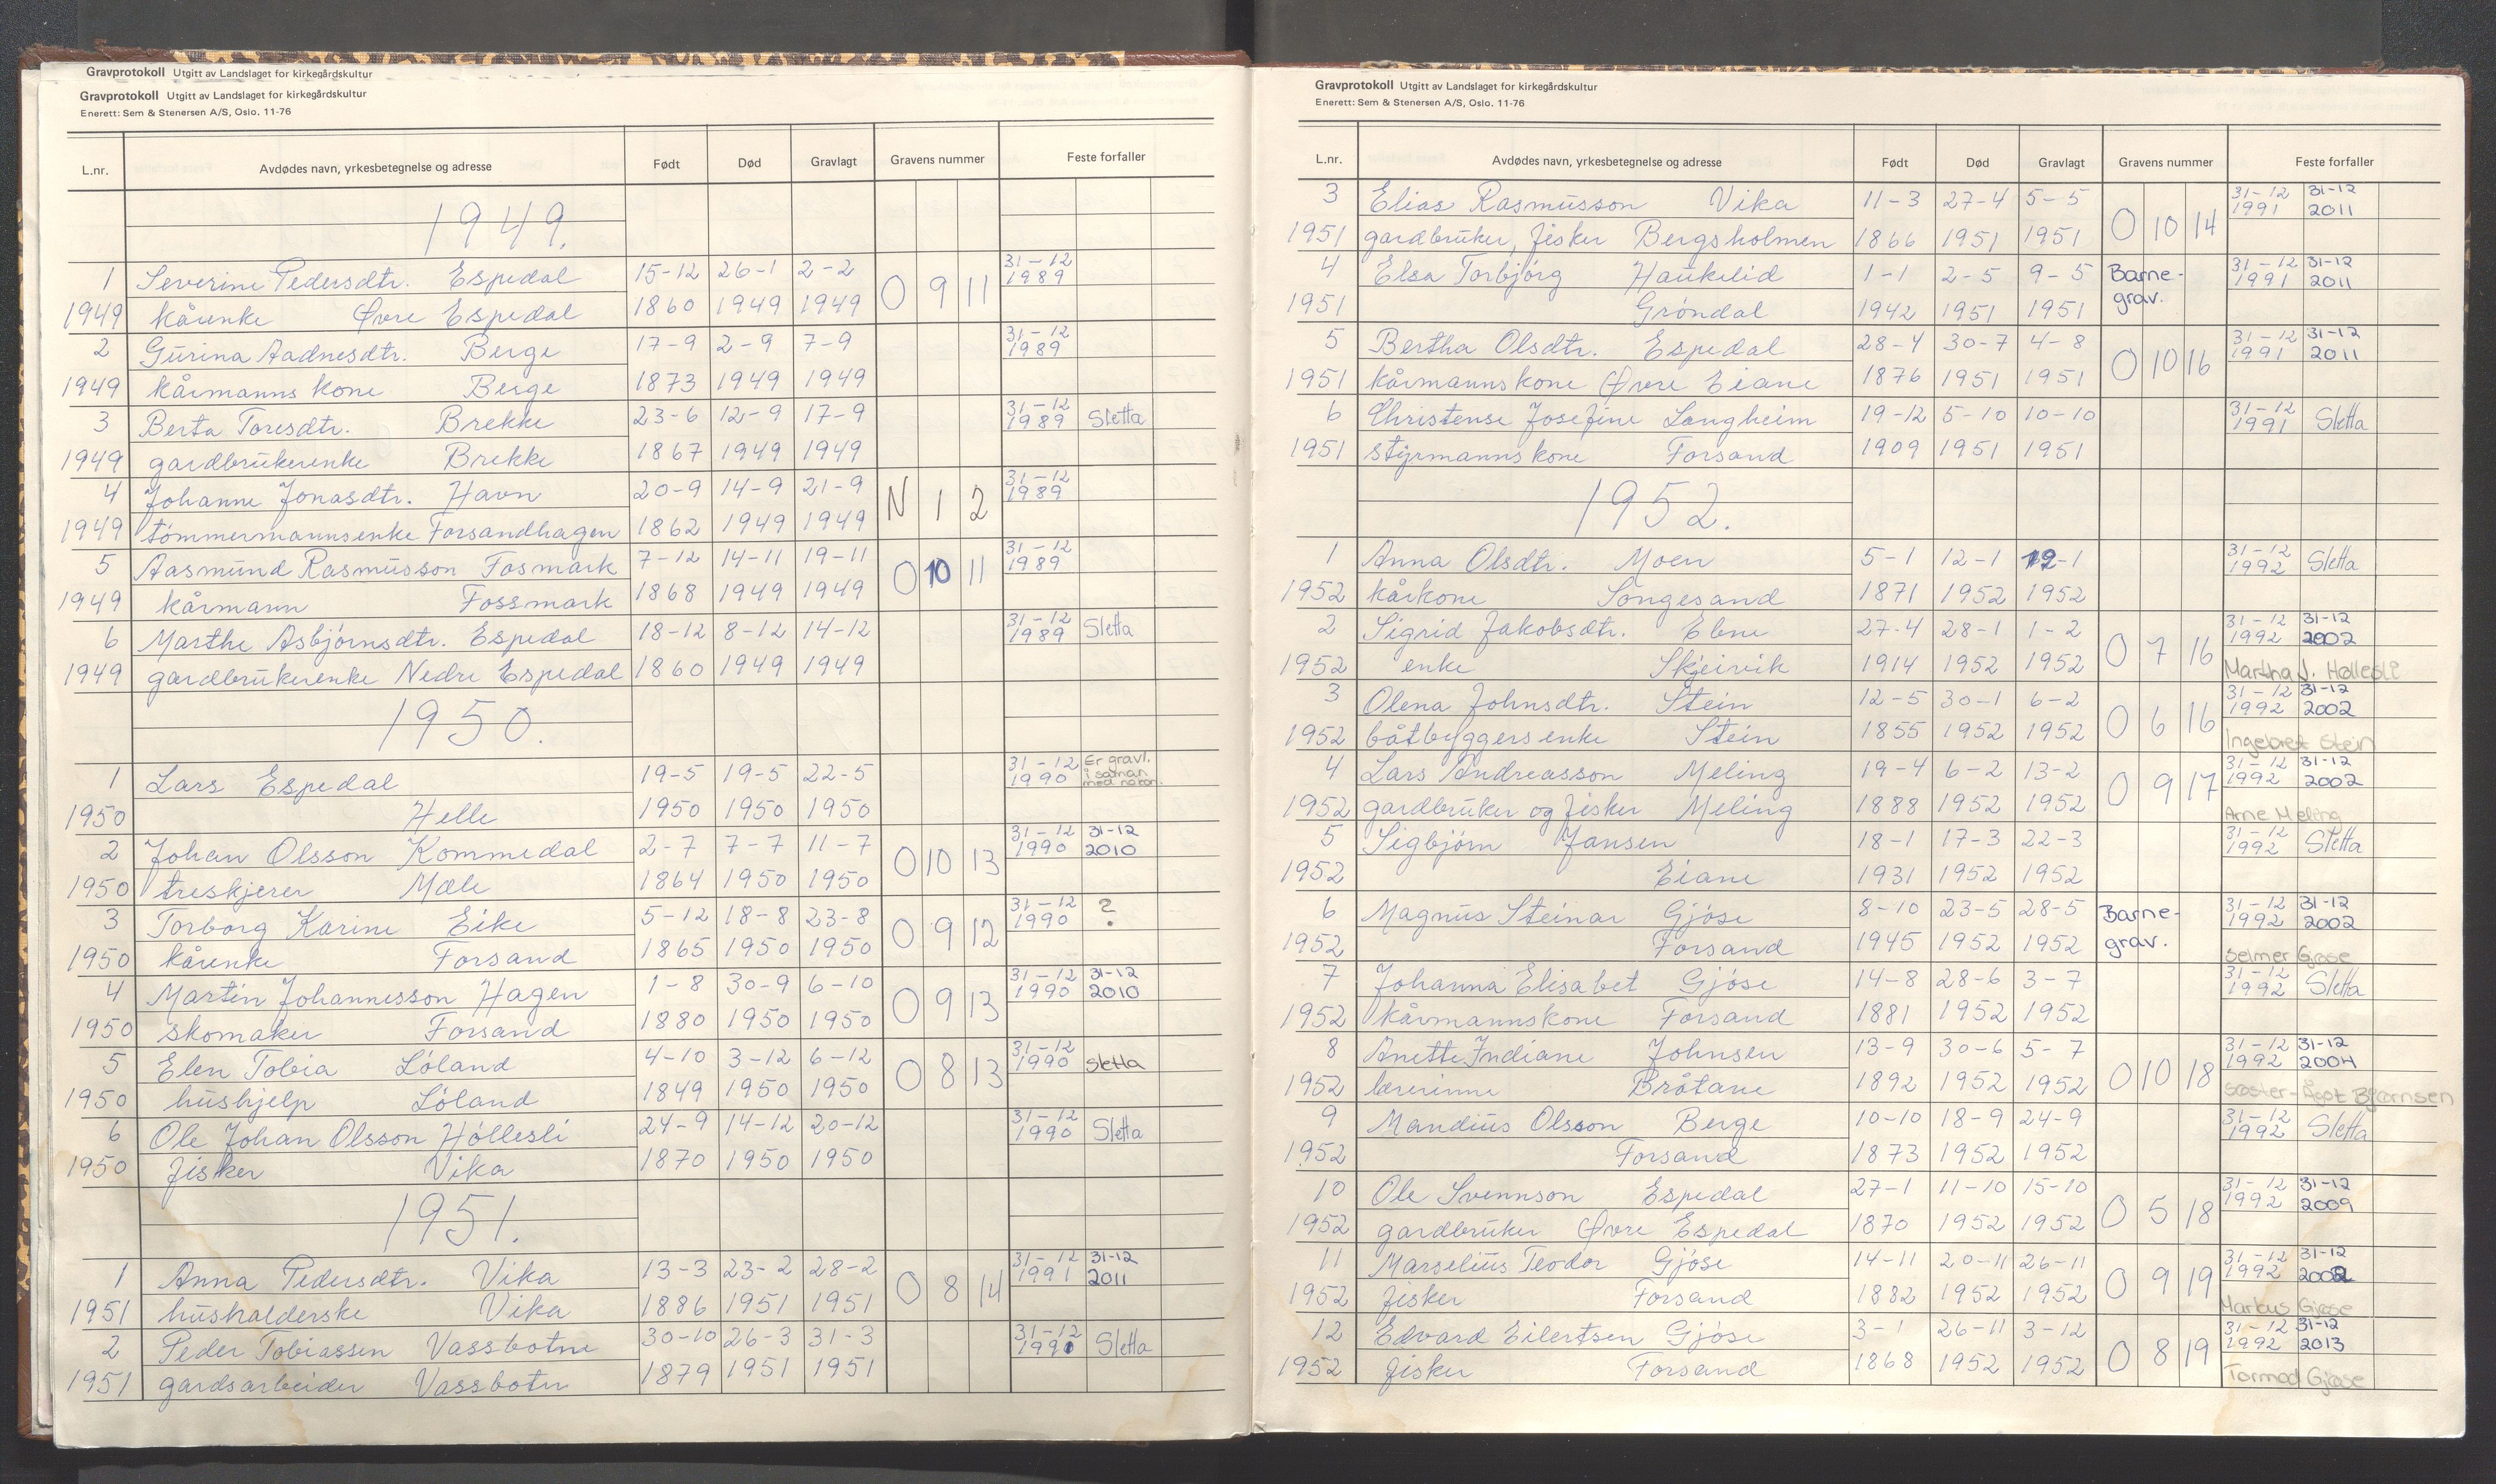 Gravprotokoll Utgitt av Landslaget for kirkegårdskultur
Gravprotokoll Utgitt av Landslaget for kirkegårdskultur
Enerett: Sem & Stenersen A/S, Oslo. 11-76
L.nr. Avdødes navn, yrkesbetegnelse og adresse Født Død Gravlagt Gravens nummer Feste forfaller
1949.
1 Severine Pedersdtr. Espedal 15-12 26-1 2-2 O 9 11 31-12 1989
1949 kårenke Øvre Espedal 1860 1949 1949
2 Gurina Aadnesdtr. Berge 17-9 2-9 7-9 31-12 1989
1949 kårmanns kone Berge 1873 1949 1949
3 Berta Toresdtr. Brekke 23-6 12-9 17-9 31-12 1989 Sletta
1949 gardbrukerenke Brekke 1867 1949 1949
4 Johanne Jonasdtr. Havn 20-9 14-9 21-9 N 1 2 31-12 1989
1949 tømmermannsenke Forsandhagen 1862 1949 1949
5 Aasmund Rasmusson Fosmark 7-12 14-11 19-11 O 10 11 31-12 1989
1949 kårmann Fossmark 1868 1949 1949
6 Marthe Asbjørnsdtr. Espedal 18-12 8-12 14-12 31-12 1989 Sletta
1949 gardbrukerenke Nedre Espedal 1860 1949 1949
1950.
1 Lars Espedal 19-5 19-5 22-5 31-12 1990 Er gravl. i saman med
1950 Helle 1950 1950 1950
2 Johan Olsson Kommedal 2-7 7-7 11-7 O 10 13 31-12 1990 31-12 2010
1950 treskjerer Mæle 1864 1950 1950
3 Torborg Karine Eike 5-12 18-8 23-8 O 9 12 31-12 1990 ?
1950 kårenke Forsand 1865 1950 1950
4 Martin Johannesson Hagen 1-8 30-9 6-10 O 9 13 31-12 1990 31-12 2010
1950 skomaker Forsand 1880 1950 1950
5 Elen Tobia Løland 4-10 3-12 6-12 O 8 13 31-12 1990 Sletta
1950 hushjelp Løland 1849 1950 1950
6 Ole Johan Olsson Høllesli 24-9 14-12 20-12 31-12 1990 Sletta
1950 fisker Vika 1870 1950 1950
1951.
1 Anna Pedersdtr. Vika 13-3 23-2 28-2 O 8 14 31-12 1991 31-12 2011
1951 husholderske Vika 1886 1951 1951
2 Peder Tobiassen Vassbotne 30-10 26-3 31-3 31-12 1991 Sletta
1951 gardsarbeider Vassbotn 1879 1951 1951
Gravprotokoll Utgitt av Landslaget for kirkegårdskultur
Enerett: Sem & Stenersen A/S, Oslo. 11-76
L.nr. Avdødes navn, yrkesbetegnelse og adresse Født Død Gravlagt Gravens nummer Feste forfaller
3 Elias Rasmusson Vika 11-3 27-4 5-5 O 10 14 31-12 1991 31-12 2011
1951 gardbruker, fisker Bergsholmen 1866 1951 1951
4 Elsa Torbjørg Haukelid 1-1 2-5 9-5 Barne- 31-12 1991 31-12 2011
1951 Grøndal 1942 1951 1951 grav.
5 Bertha Olsdtr. Espedal 28-4 30-7 4-8 O 10 16 31-12 1991 31-12 2011
1951 kårmannskone Øvre Eiane 1876 1951 1951
6 Christense Josefine Langheim 19-12 5-10 10-10 31-12 1991 Sletta
1951 styrmannskone Forsand 1909 1951 1951
1952.
1 Anna Olsdtr. Moen 5-1 12-1 19-1 31-12 1992 Sletta
1952 kårkone Songesand 1871 1952 1952
2 Sigrid Jakobsdtr. Elene 27-4 28-1 1-2 O 7 16 31-12 1992 31-12 2002
1952 enke Skjeirvik 1914 1952 1952 Martha J. Høllesli
3 Olena Johnsdtr. Stein 12-5 30-1 6-2 O 6 16 31-12 1992 31-12 2002
1952 båtbyggersenke Stein 1855 1952 1952 Ingebret Stein
4 Lars Andreasson Meling 19-4 6-2 13-2 O 9 17 31-12 1992 31-12 2002
1952 gardbruker og fisker Meling 1888 1952 1952 Arne Meling
5 Sigbjørn Jansen 18-1 17-3 22-3 31-12 1992 Sletta
1952 Eiane 1931 1952 1952
6 Magnus Steinar Gjøse 8-10 23-5 28-5 Barne- 31-12 1992 31-12 2002
1952 Forsand 1945 1952 1952 grav. Selmer Gjøse
7 Johanna Elisabet Gjøse 14-8 28-6 3-7 31-12 1992 Sletta
1952 kårmannskone Forsand 1881 1952 1952
8 Anette Indiane Johnsen 13-9 30-6 5-7 O 10 18 31-12 1992 31-12 2004
1952 lærerinne Bråtane 1892 1952 1952 Bjørnsen
9 Mandius Olsson Berge 10-10 18-9 24-9 31-12 1992 Sletta
1952 Forsand 1873 1952 1952
10 Ole Svennson Espedal 27-1 11-10 15-10 O 5 18 31-12 1992 31-12 2009
1952 gardbruker Øvre Espedal 1870 1952 1952
11 Marselius Teodor Gjøse 14-11 20-11 26-11 O 9 19 31-12 1992 31-12 2002
1952 fisker Forsand 1882 1952 1952 Markus Gjøse
12 Edvard Eilertsen Gjøse 3-1 26-11 3-12 O 8 19 31-12 1992 31-12 2013
1952 fisker Forsand 1868 1952 1952 Tormod Gjøse